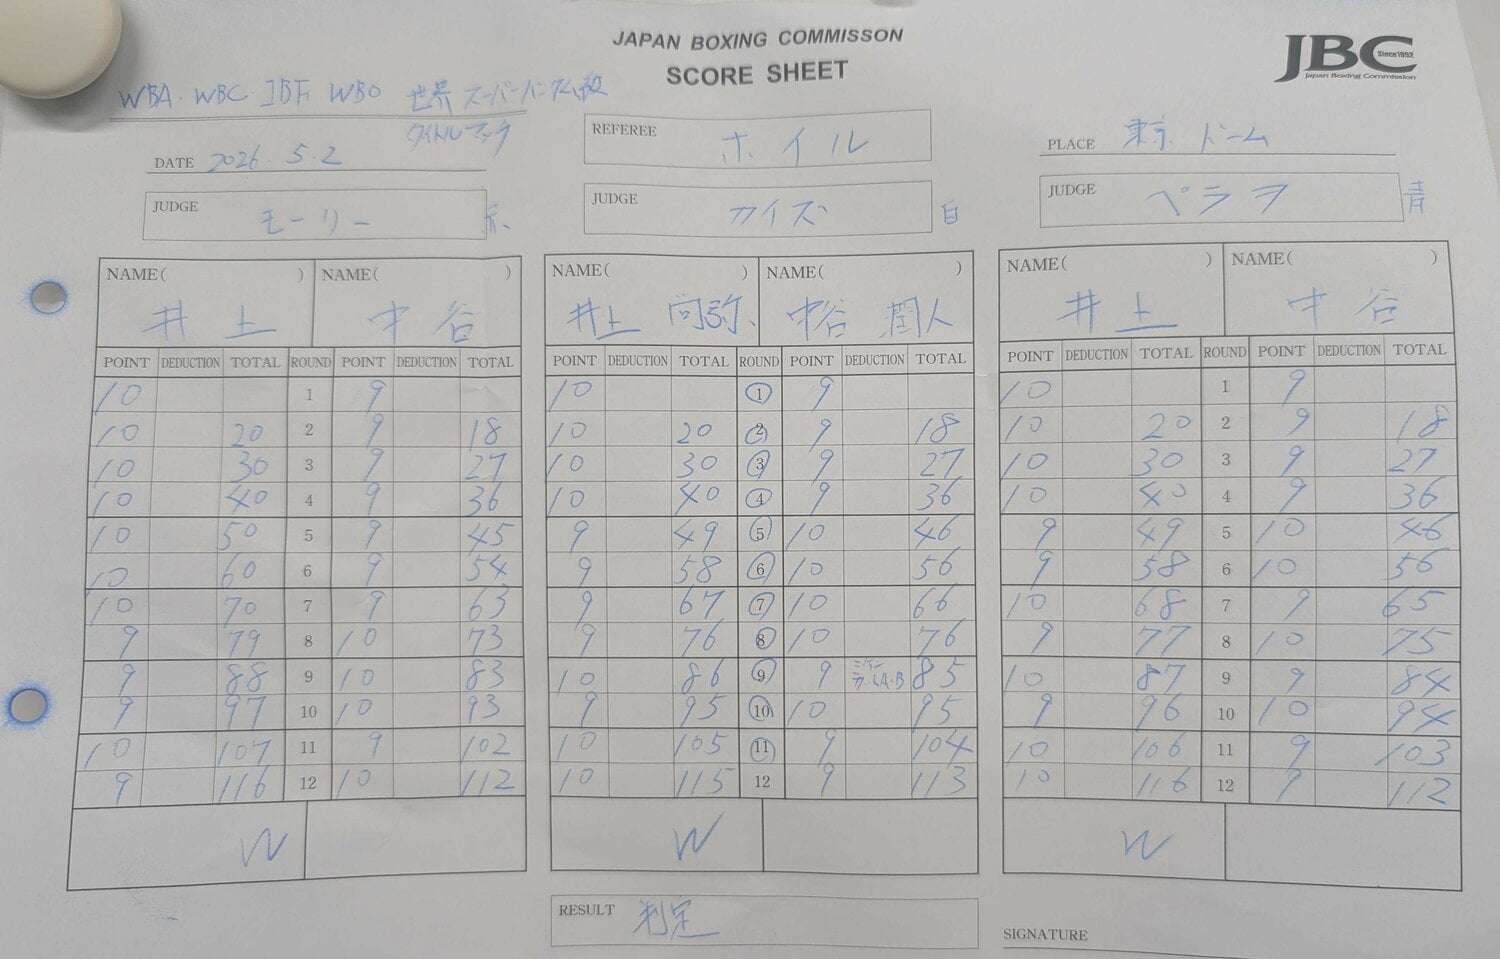 JAPAN BOXING COMMISSON
SCORE SHEET
JBC
Since1952
Japan Boxing Commission
WBA・WBC・IBF WBO 世界 スーパーバンタム級
タイトルマッチ
DATE 2026.5.2
REFEREE ホイル
PLACE 東京ドーム
JUDGE モーリー 赤
JUDGE カイズ 白
JUDGE ペラヲ 青
NAME( ) NAME( ) NAME( ) NAME( ) NAME( ) NAME( )
井上 中谷 井上 尚弥 中谷 潤人 井上 中谷
POINT DEDUCTION TOTAL ROUND POINT DEDUCTION TOTAL POINT DEDUCTION TOTAL ROUND POINT DEDUCTION TOTAL POINT DEDUCTION TOTAL ROUND POINT DEDUCTION TOTAL
10 1 9 10 1 9 10 1 9
10 20 2 9 18 10 20 2 9 18 10 20 2 9 18
10 30 3 9 27 10 30 3 9 27 10 30 3 9 27
10 40 4 9 36 10 40 4 9 36 10 40 4 9 36
10 50 5 9 45 9 49 5 10 46 9 49 5 10 46
10 60 6 9 54 9 58 6 10 56 9 58 6 10 56
10 70 7 9 63 9 67 7 10 66 10 68 7 9 65
9 79 8 10 73 9 76 8 10 76 9 77 8 10 75
9 88 9 10 83 10 86 9 9 85 10 87 9 9 84
9 97 10 10 93 9 95 10 10 95 9 96 10 10 94
10 107 11 9 102 10 105 11 9 104 10 106 11 9 103
9 116 12 10 112 10 115 12 9 113 10 116 12 9 112
W W W
RESULT 判定
SIGNATURE